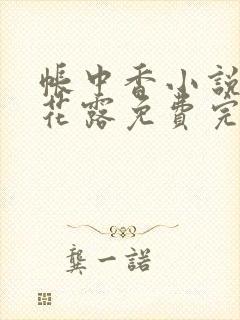 帳中香小說
花露免費完
龔一諾